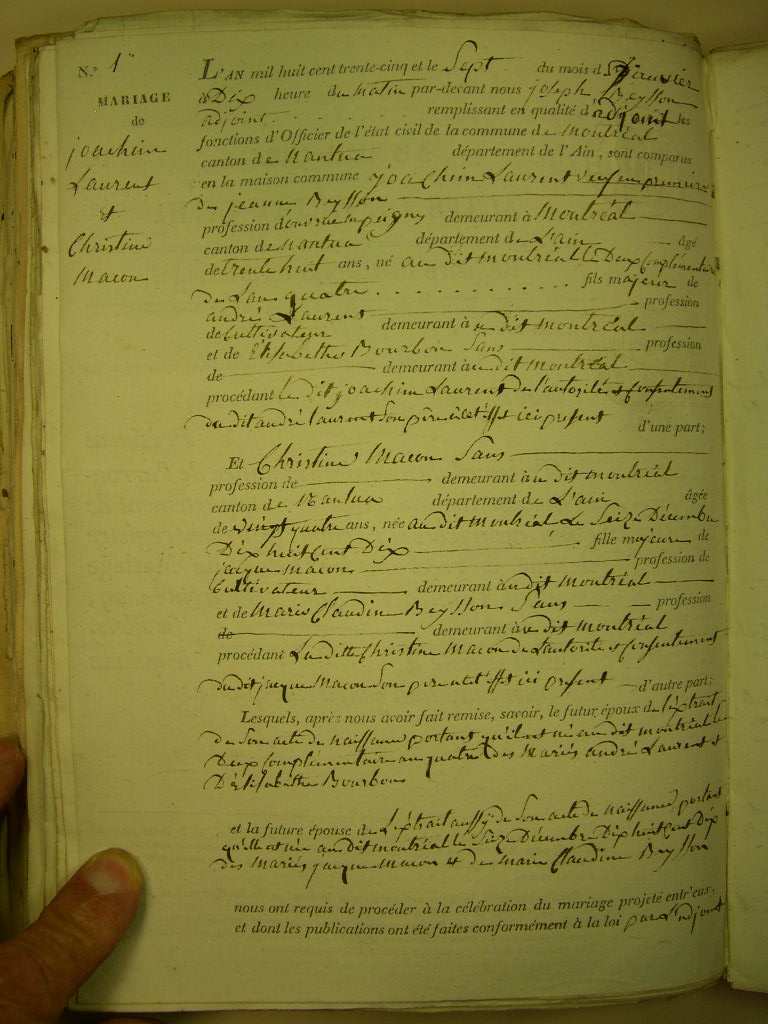 N.º 1er
MARIAGE
de
joachim
Laurent
et
Christine
Macon
L'AN mil huit cent trente-cinq et le Sept du mois de Janvier
à Dix heure du Matin par-devant nous joseph Beysson
adjoint . . . . . . . . remplissant en qualité d'adjoint les
fonctions d'Officier de l'état civil de la commune de Montréal
canton de Nantua département de l'Ain, sont comparus
en la maison commune joachim Laurent veuf en premier
de jeanne Beysson
profession d'ouvrier en peigny demeurant à Montréal
canton de Nantua département de L'ain âgé
de trente huit ans, né au dit montréal le Deux Complémentaire
de L'an quatre . . . . . . . . . . fils majeur de
andré Laurent profession
de Cultivateur demeurant à u dit montréal
et de Elisabethe Bourbon Sans profession
de demeurant à u dit montréal
procédant le dit joachim Laurent de l'autorité et Consentement
du dit andré laurent Son père à cet effet ici présent d'une part;
Et Christine Macon Sans
profession de demeurant à u dit montréal
canton de Nantua département de L'ain âgée
de vingt quatre ans, née au dit montréal Le Seize Décembre
Dix huit Cent Dix fille majeure de
jacque Macon profession de
Cultivateur demeurant à u dit montréal
et de Marie Claudine Beysson Sans profession
de demeurant à u dit montréal
procédant La ditte Christine Macon de L'autorité et Consentement
du dit jacque Macon Son pere a cet effet ici présent d'autre part;
Lesquels, après nous avoir fait remise, savoir, le futur époux de l'extrait
de Son acte de naissance portant qu'il est né au dit montréal le
Deux Complémentaire an quatre des Mariés andré Laurent et
D'Elisabethe Bourbon
et la future épouse de L'extrait aussy de Son acte de naissance portant
qu'elle est née au dit montréal le Seize Décembre Dix huit Cent Dix
des Mariés jacque Macon et de Marie Claudine Beysson
nous ont requis de procéder à la célébration du mariage projeté entr'eux,
et dont les publications ont été faites conformément à la loi par L'adjoint